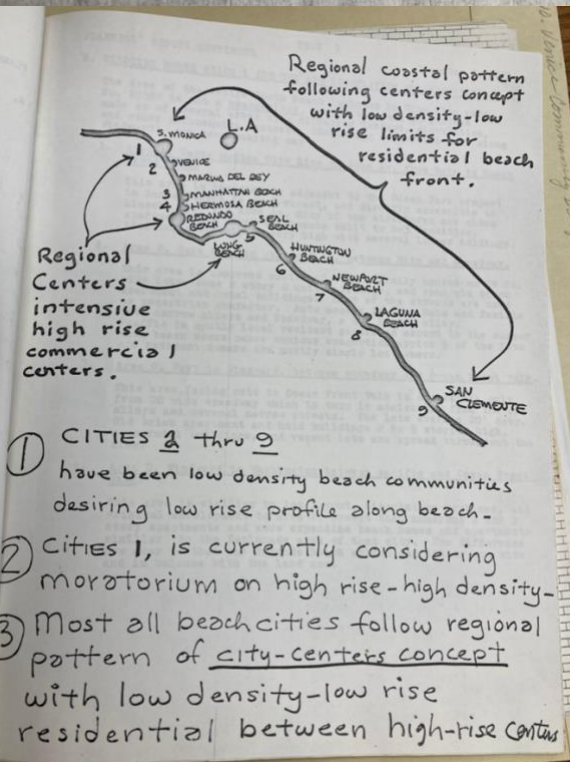 Regional coastal pattern
following centers concept
with low density-low
rise limits for
residential beach
front.
L.A
S. MONICA
1
2
VENICE
MARINA DEL REY
3
MANHATTAN BEACH
4
HERMOSA BEACH
REDONDO
BEACH
SEAL
BEACH
5
LONG
BEACH
HUNTINGTON
BEACH
6
NEWPORT
BEACH
7
LAGUNA
BEACH
8
SAN
CLEMENTE
9
Regional
Centers
intensive
high rise
commercial
centers.
① CITIES 2 thru 9
have been low density beach communities
desiring low rise profile along beach-
② Cities 1, is currently considering
moratorium on high rise-high density-
③ Most all beach cities follow regional
pattern of city-centers concept
with low density-low rise
residential between high-rise centers